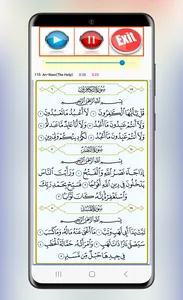 Exit
An-Nasr(The Help)
سُورَةُ الكَافِرُونَ
بِسْمِ اللَّهِ الرَّحْمَٰنِ الرَّحِيمِ
قُلْ يَا أَيُّهَا الْكَافِرُونَ ۝ لَا أَعْبُدُ مَا تَعْبُدُونَ ۝
وَلَا أَنْتُمْ عَابِدُونَ مَا أَعْبُدُ ۝ وَلَا أَنَا عَابِدٌ مَا عَبَدْتُمْ ۝
وَلَا أَنْتُمْ عَابِدُونَ مَا أَعْبُدُ ۝ لَكُمْ دِينُكُمْ وَلِيَ دِينِ ۝
سُورَةُ النَّصْرِ
بِسْمِ اللَّهِ الرَّحْمَٰنِ الرَّحِيمِ
إِذَا جَاءَ نَصْرُ اللَّهِ وَالْفَتْحُ ۝ وَرَأَيْتَ النَّاسَ
يَدْخُلُونَ فِي دِينِ اللَّهِ أَفْوَاجًا ۝ فَسَبِّحْ بِحَمْدِ رَبِّكَ
وَاسْتَغْفِرْهُ إِنَّهُ كَانَ تَوَّابًا ۝
سُورَةُ المَسَدِ
بِسْمِ اللَّهِ الرَّحْمَٰنِ الرَّحِيمِ
تَبَّتْ يَدَا أَبِي لَهَبٍ وَتَبَّ ۝ مَا أَغْنَىٰ عَنْهُ مَالُهُ وَمَا كَسَبَ ۝
سَيَصْلَىٰ نَارًا ذَاتَ لَهَبٍ ۝ وَامْرَأَتُهُ حَمَّالَةَ الْحَطَبِ ۝
فِي جِيدِهَا حَبْلٌ مِنْ مَسَدٍ ۝